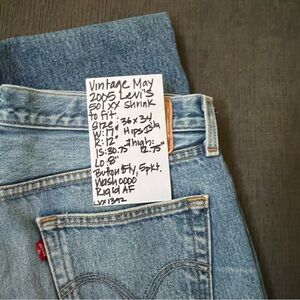 Vintage May
2005 Levi's
501 XX Shrink
to fit.
Size: 36 x 34
W: 17" Hips:
R: 12" Thigh:
IS: 30.75" 12.75"
LO: 8"
Button Fly, 5pkt.
Wash 0000
Rigid AF
LVX1342